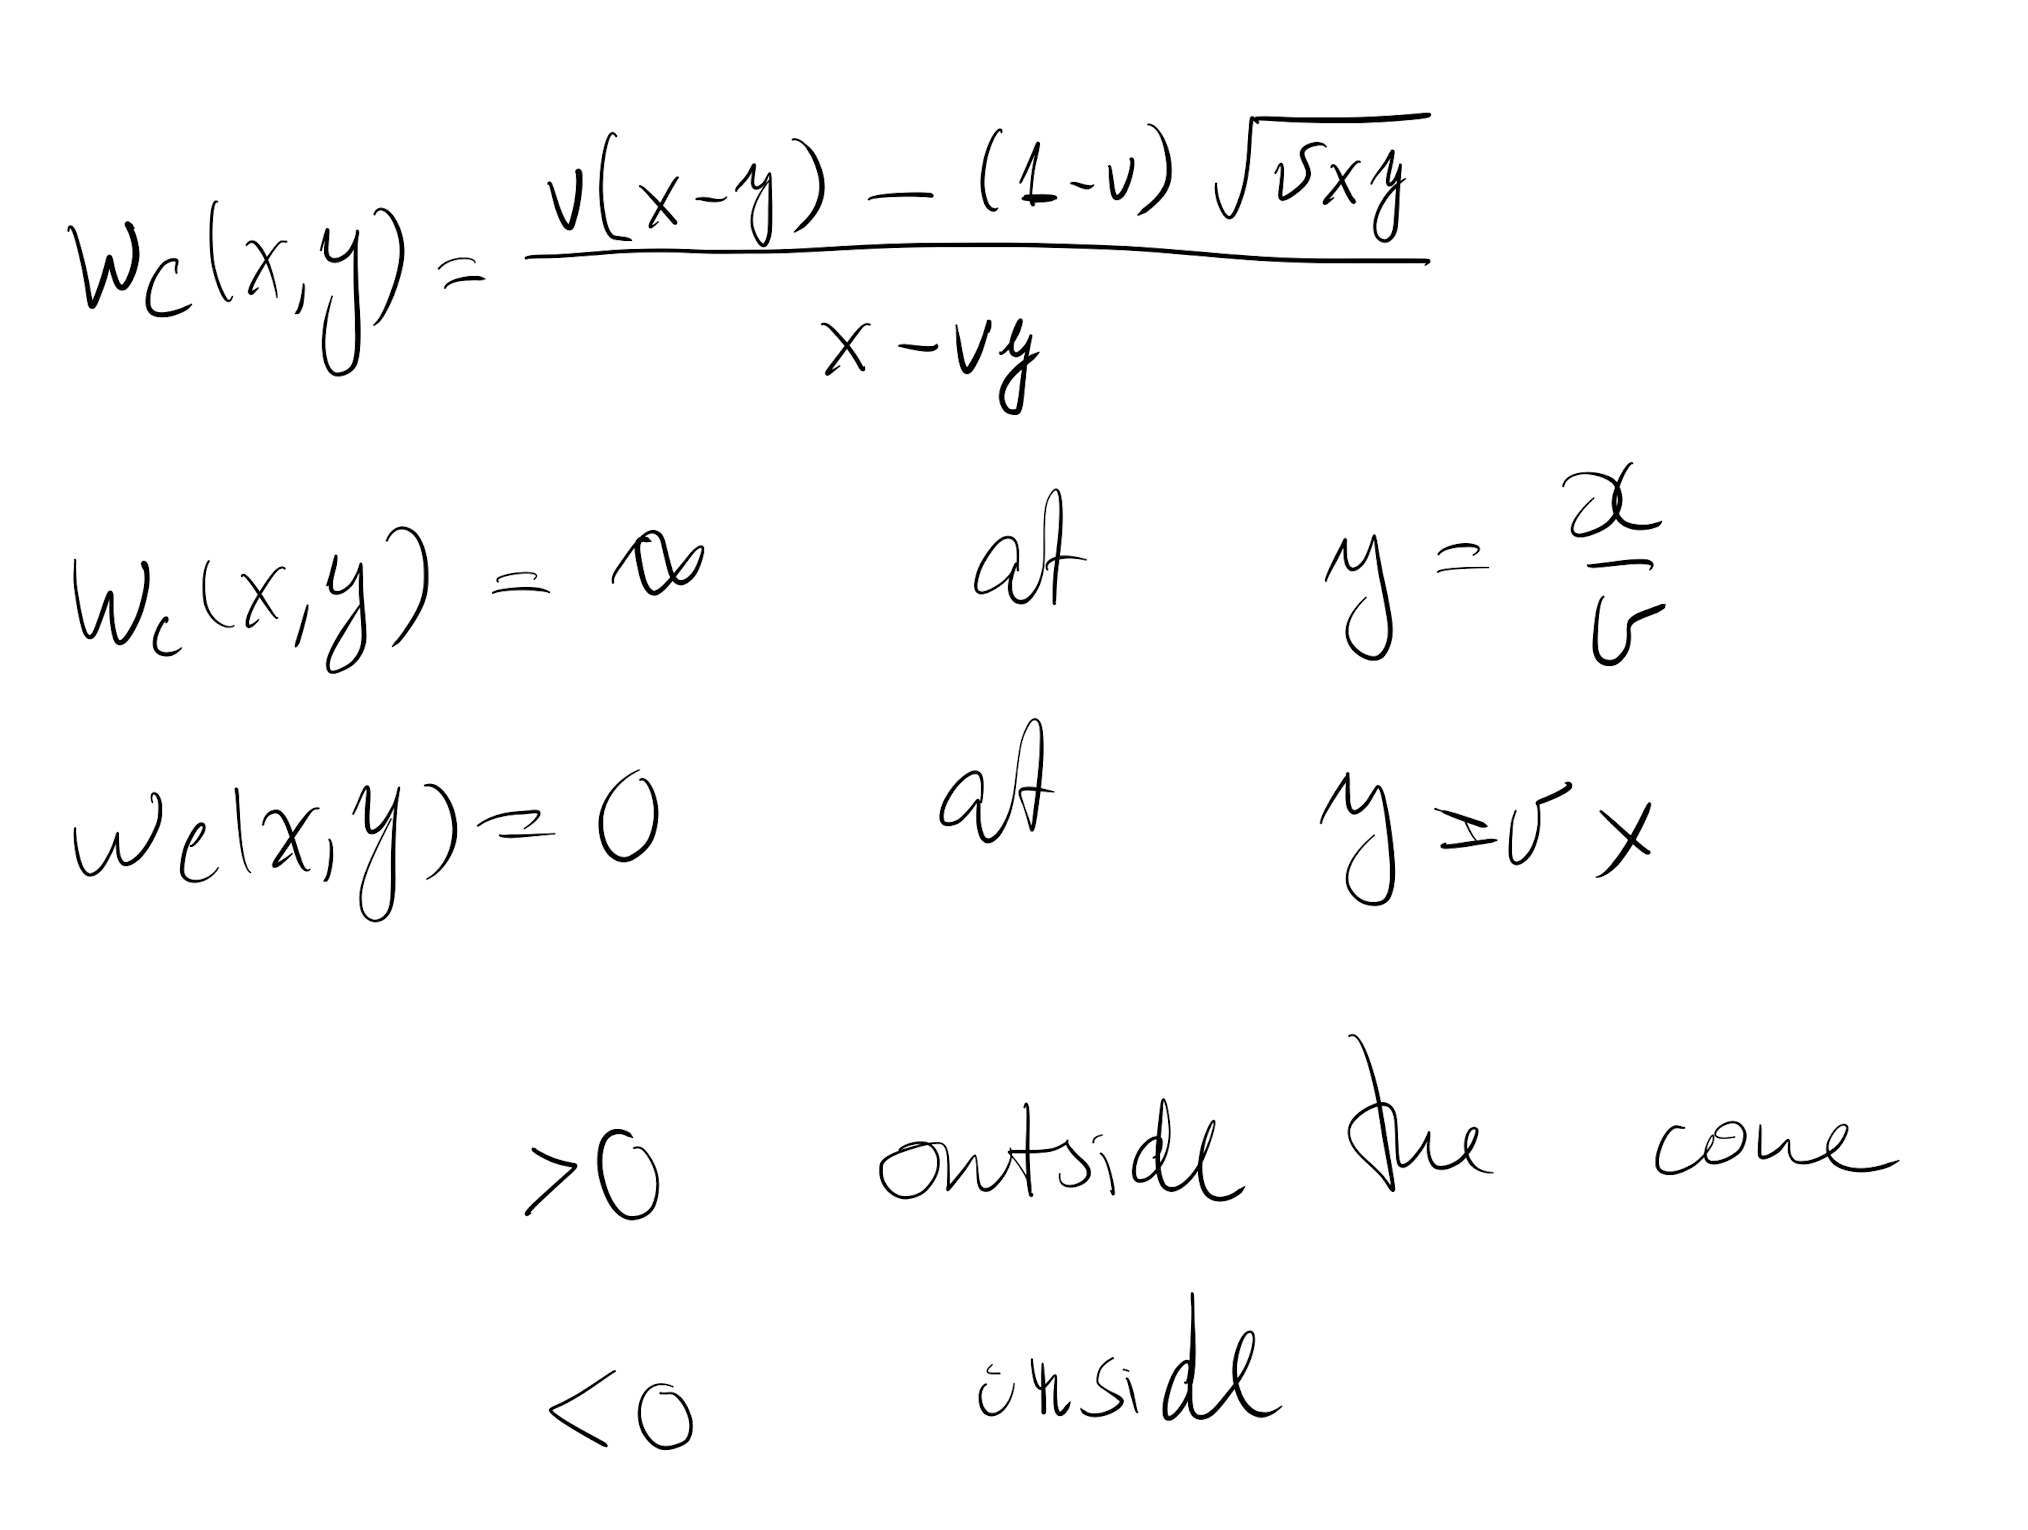 w_c(x,y) = \frac{v(x-y) - (1-v)\sqrt{vxy}}{x-vy}
w_c(x,y) = ∞ at y = \frac{x}{v}
w_c(x,y) = 0 at y = v x
>0 outside the cone
<0 inside